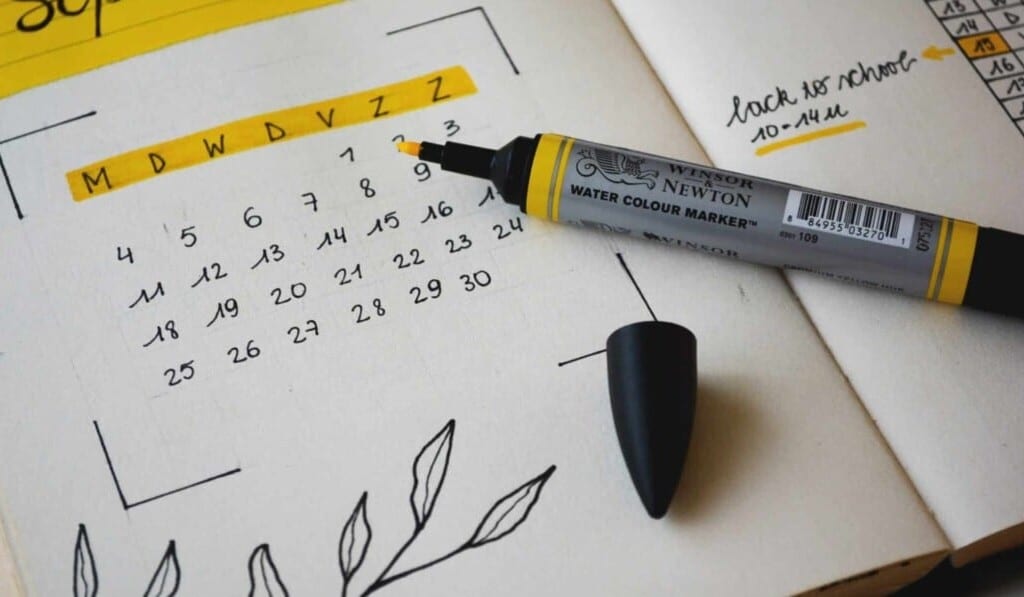 Sep
M D W D V Z Z
1 2 3
4 5 6 7 8 9
11 12 13 14 15 16
18 19 20 21 22 23 24
25 26 27 28 29 30
13
14 D
15
16
back to school
10-14u
WINSOR
&
NEWTON
WATER COLOUR MARKER™
8 84955 03270 1
109
WINSOR
YELLOW HUE